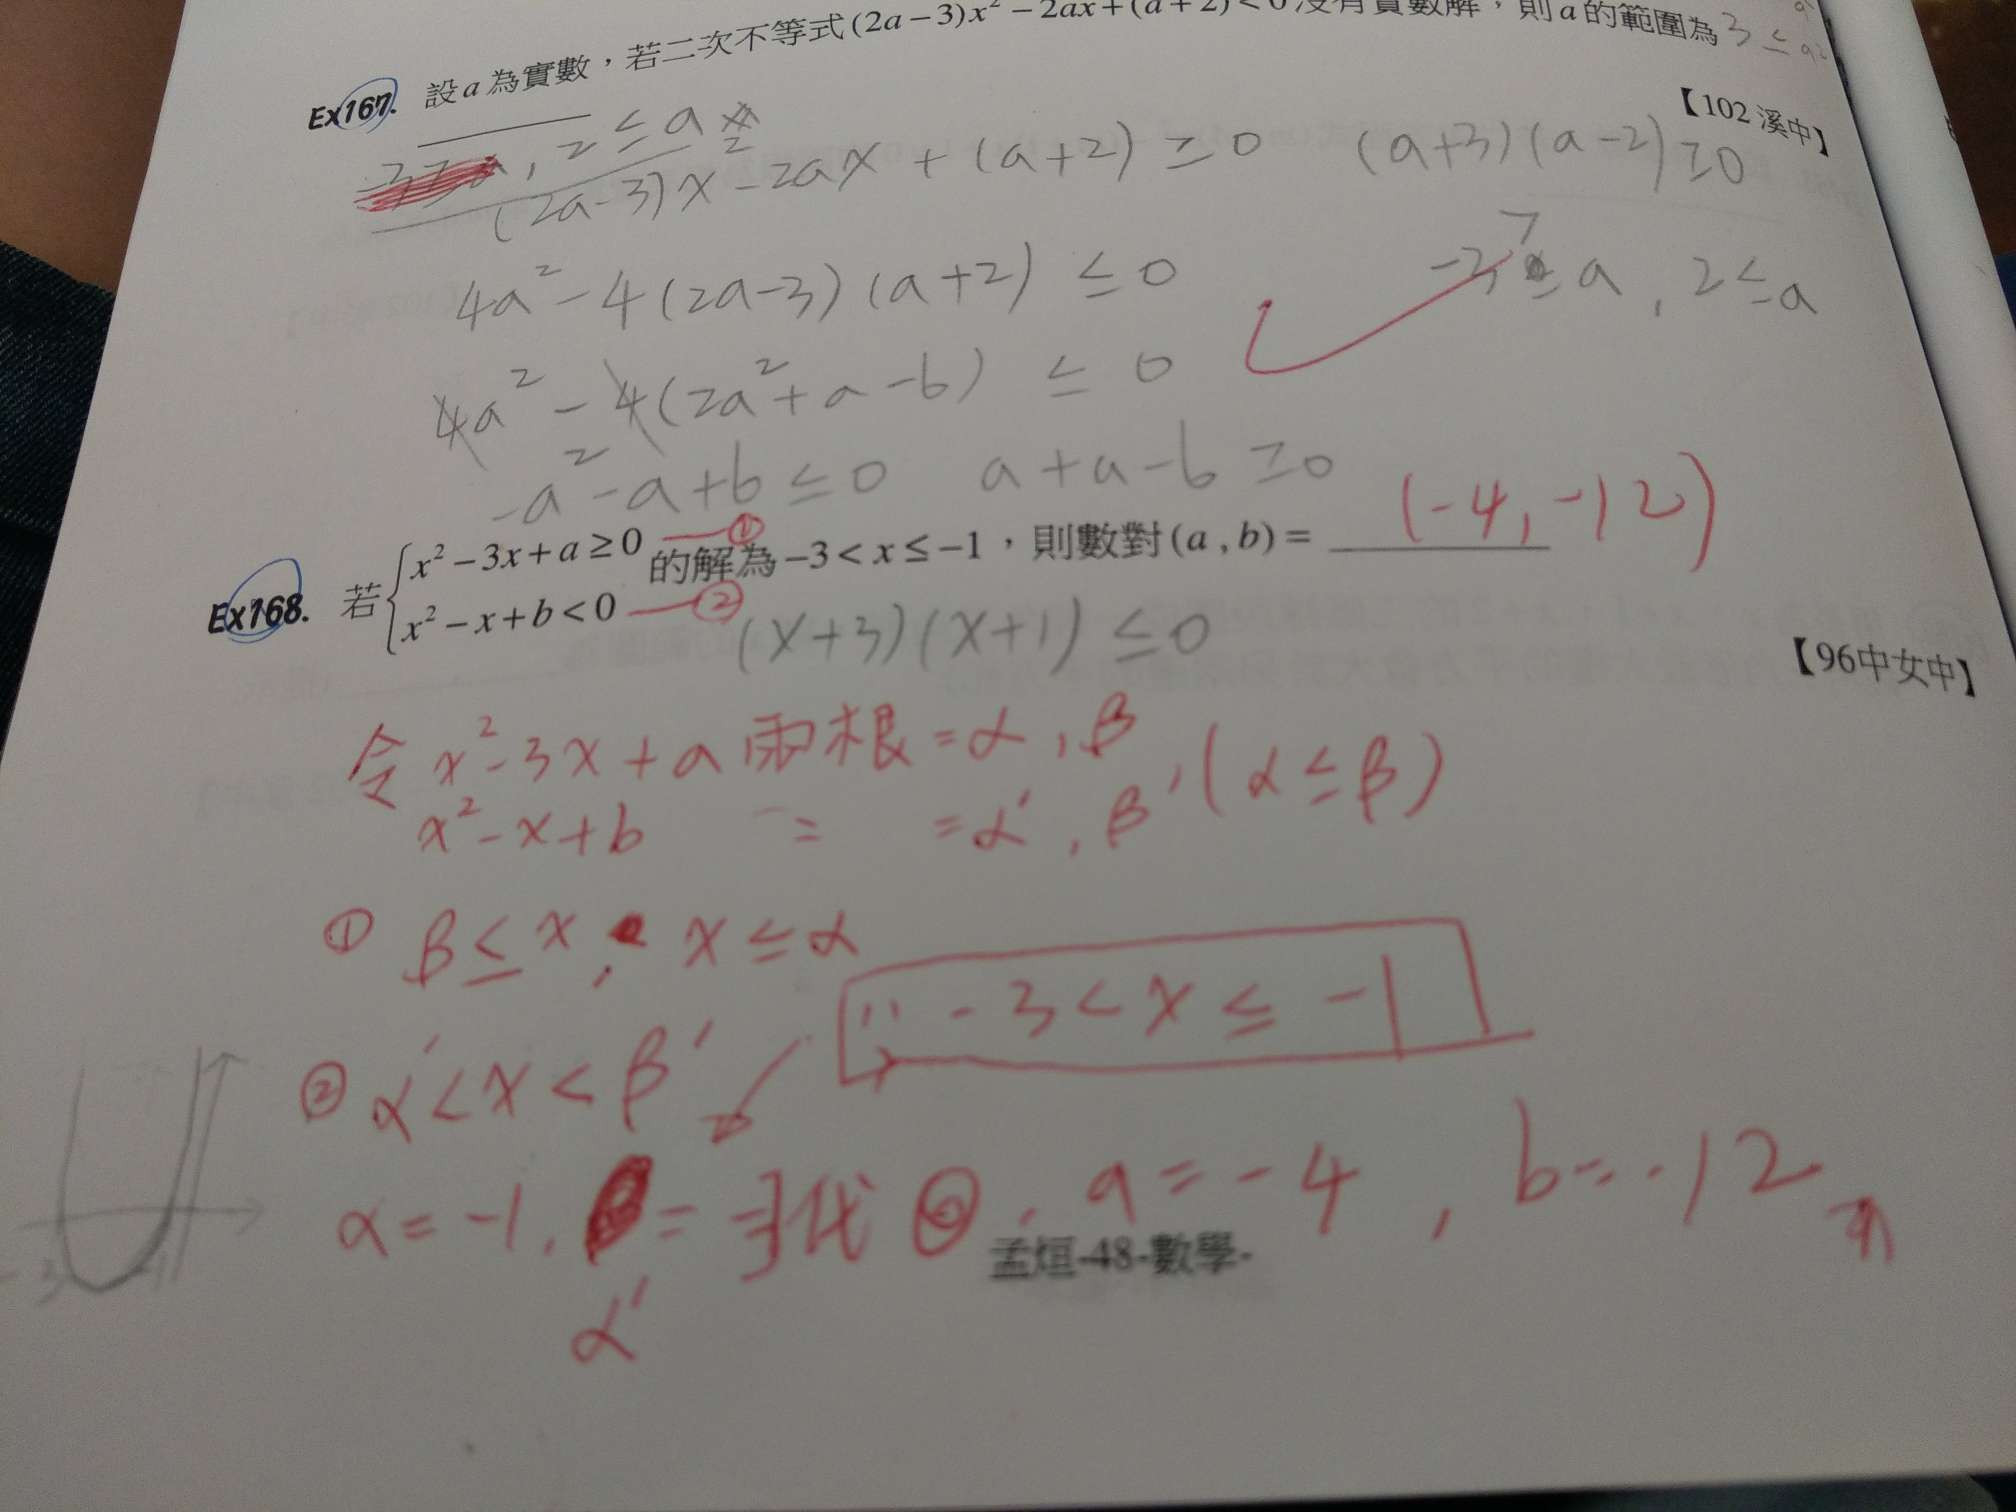 Ex167. 設a為實數，若二次不等式(2a−3)x²−2ax+(a+2)<0沒有實數解，則a的範圍為 3≤
, 2≤a
【102 溪中】
(2a-3)x²-2ax+(a+2)≥0 (a+3)(a-2)≥0
4a²-4(2a-3)(a+2)≤0 -3≥a, 2≤a
4a²-4(2a²+a-6)≤0
-a²-a+6≤0 a+a-6≥0
Ex168. 若{x²−3x+a≥0 —①
x²−x+b<0 —②
的解為−3<x≤−1，則數對(a,b)= (-4,-12)
(x+3)(x+1)≤0
【96中女中】
令 x²-3x+a 兩根=α,β
x²-x+b = =α',β',(α≤β)
① β≤x, x≤α
-3<x≤-1
② α'<x<β'
α=-1, = -3代②, a=-4, b=-12
α'
孟烜-48-數學-